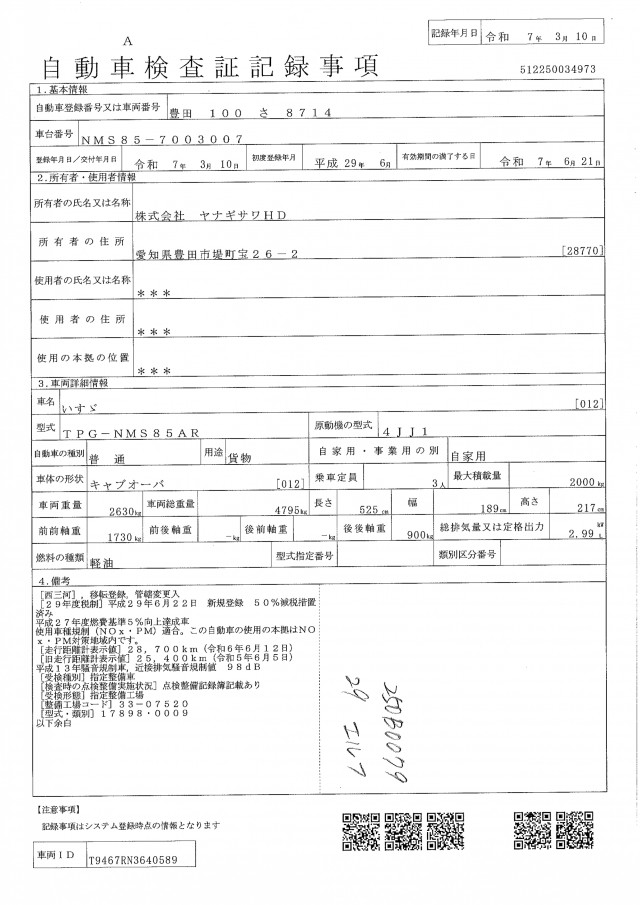 記録年月日 令和 7年 3月10日
A
自動車検査証記録事項
512250034973
1.基本情報
自動車登録番号又は車両番号 豊田 100 さ 8714
車台番号 NMS85-7003007
登録年月日/交付年月日 令和 7年 3月10日 初度登録年月 平成 29年 6月 有効期間の満了する日 令和 7年 6月21日
2.所有者・使用者情報
所有者の氏名又は名称 株式会社 ヤナギサワHD
所有者の住所 愛知県豊田市堤町宝26-2 [28770]
使用者の氏名又は名称 ***
使用者の住所 ***
使用の本拠の位置 ***
3.車両詳細情報
車名 いすゞ [012]
型式 TPG-NMS85AR 原動機の型式 4JJ1
自動車の種別 普通 用途 貨物 自家用・事業用の別 自家用
車体の形状 キャブオーバ [012] 乗車定員 3人 最大積載量 2000kg
車両重量 2630kg 車両総重量 4795kg 長さ 525cm 幅 189cm 高さ 217cm
前前軸重 1730kg 前後軸重 -kg 後前軸重 -kg 後後軸重 900kg 総排気量又は定格出力 2.99 kW L
燃料の種類 軽油 型式指定番号 類別区分番号
4.備考
[西三河],移転登録,管轄変更入
[29年度税制]平成29年6月22日 新規登録 50%減税措置
済み
平成27年度燃費基準5%向上達成車
使用車種規制(NOx・PM)適合。この自動車の使用の本拠はNO
x・PM対策地域内です。
[走行距離計表示値]28,700km(令和6年6月12日)
[旧走行距離計表示値]25,400km(令和5年6月5日)
平成13年騒音規制車,近接排気騒音規制値 98dB
[受検種別]指定整備車
[検査時の点検整備実施状況]点検整備記録簿記載あり
[受検形態]指定整備工場
[整備工場コード]33-07520
[型式・類別]17898・0009
以下余白
250B0079
29 エルフ
【注意事項】
記録事項はシステム登録時点の情報となります
車両ID T9467RN3640589